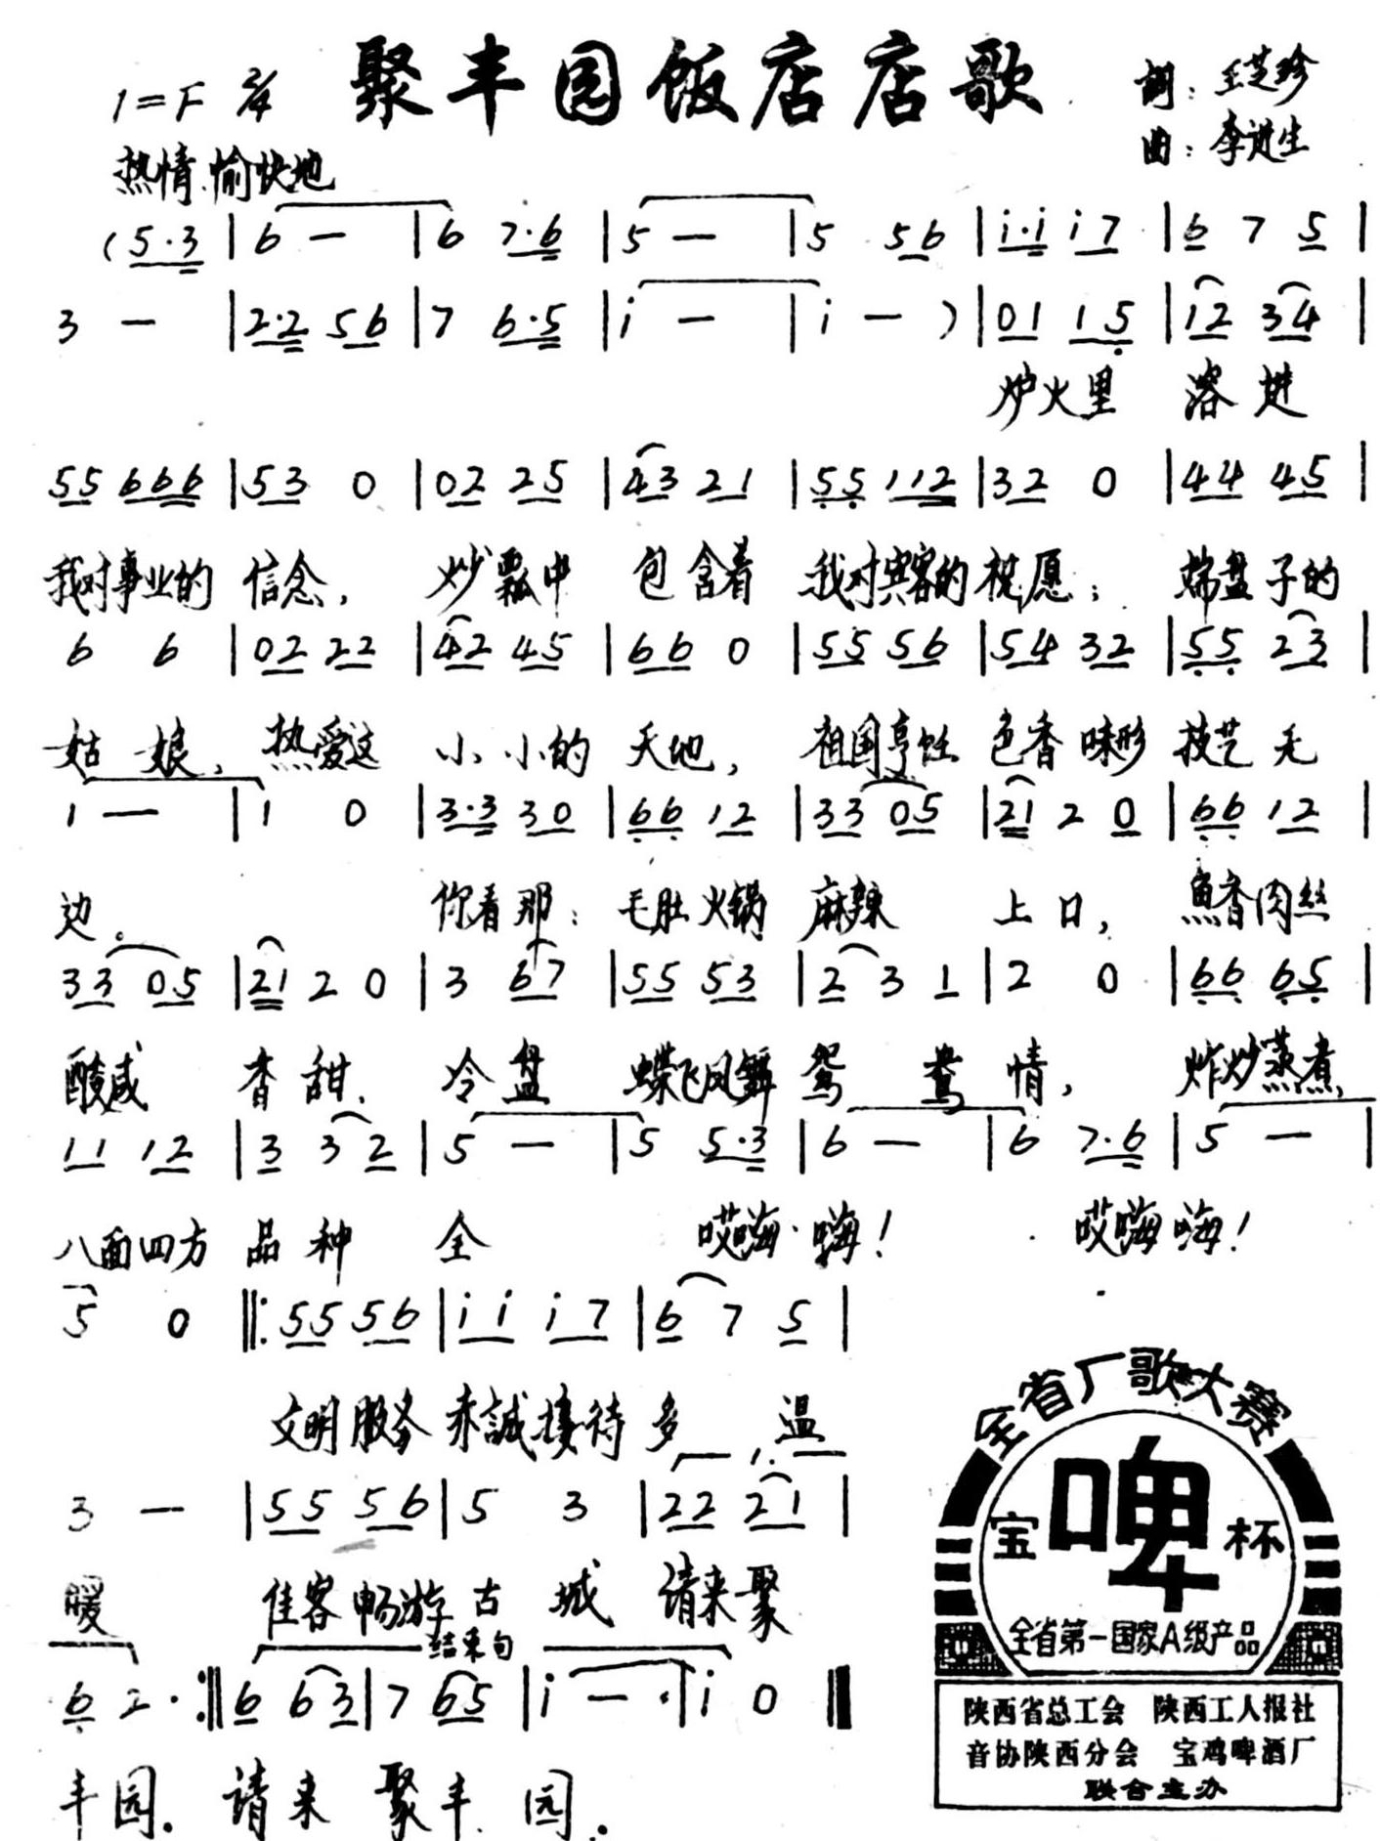 聚丰园饭店店歌
1=F 2/4
詞：王芝珍
曲：李进生
热情、愉快地
(5·3 | 6 — | 6 7·6 | 5 — | 5 56 | i·i i7 | 6 7 5 |
3 — | 2·2 56 | 7 6·5 | i — | i — ) | 01 15 | 12 34 |
炉火里 溶进
55 666 | 53 0 | 02 25 | 43 21 | 55 112 | 32 0 | 44 45 |
我对事业的 信念， 炒瓢中 包含着 我对宾客的祝愿； 端盘子的
6 6 | 02 22 | 42 45 | 66 0 | 55 56 | 54 32 | 55 23 |
姑娘，热爱这 小小的 天地， 祖国烹饪 色香味形 技艺无
1 — | 1 0 | 3·3 30 | 66 12 | 33 05 | 21 2 0 | 66 12 |
边。 你看那： 毛肚火锅 麻辣 上口， 鱼香肉丝
33 05 | 21 2 0 | 3 67 | 55 53 | 2 3 1 | 2 0 | 66 65 |
酸咸 香甜、 冷盘 蝶飞凤舞 鸳鸯情， 炸炒蒸煮
11 12 | 3 3 2 | 5 — | 5 5·3 | 6 — | 6 7·6 | 5 — |
八面四方 品种 全 哎嗨·嗨！ 哎嗨嗨！
5 0 ‖: 55 56 | i i i 7 | 6 7 5 |
文明服务 赤誠接待 多 温
3 — | 55 56 | 5 3 | 22 21 |
1.
暖 佳客畅游 古城 请来聚
结束句
6 2 · :‖ 6 6 3 | 7 65 | i — · | i 0 ‖
丰园． 请来 聚丰 园．
全省厂歌大赛
宝 啤 杯
全省第一国家A级产品
陕西省总工会 陕西工人报社
音协陕西分会 宝鸡啤酒厂
联合主办